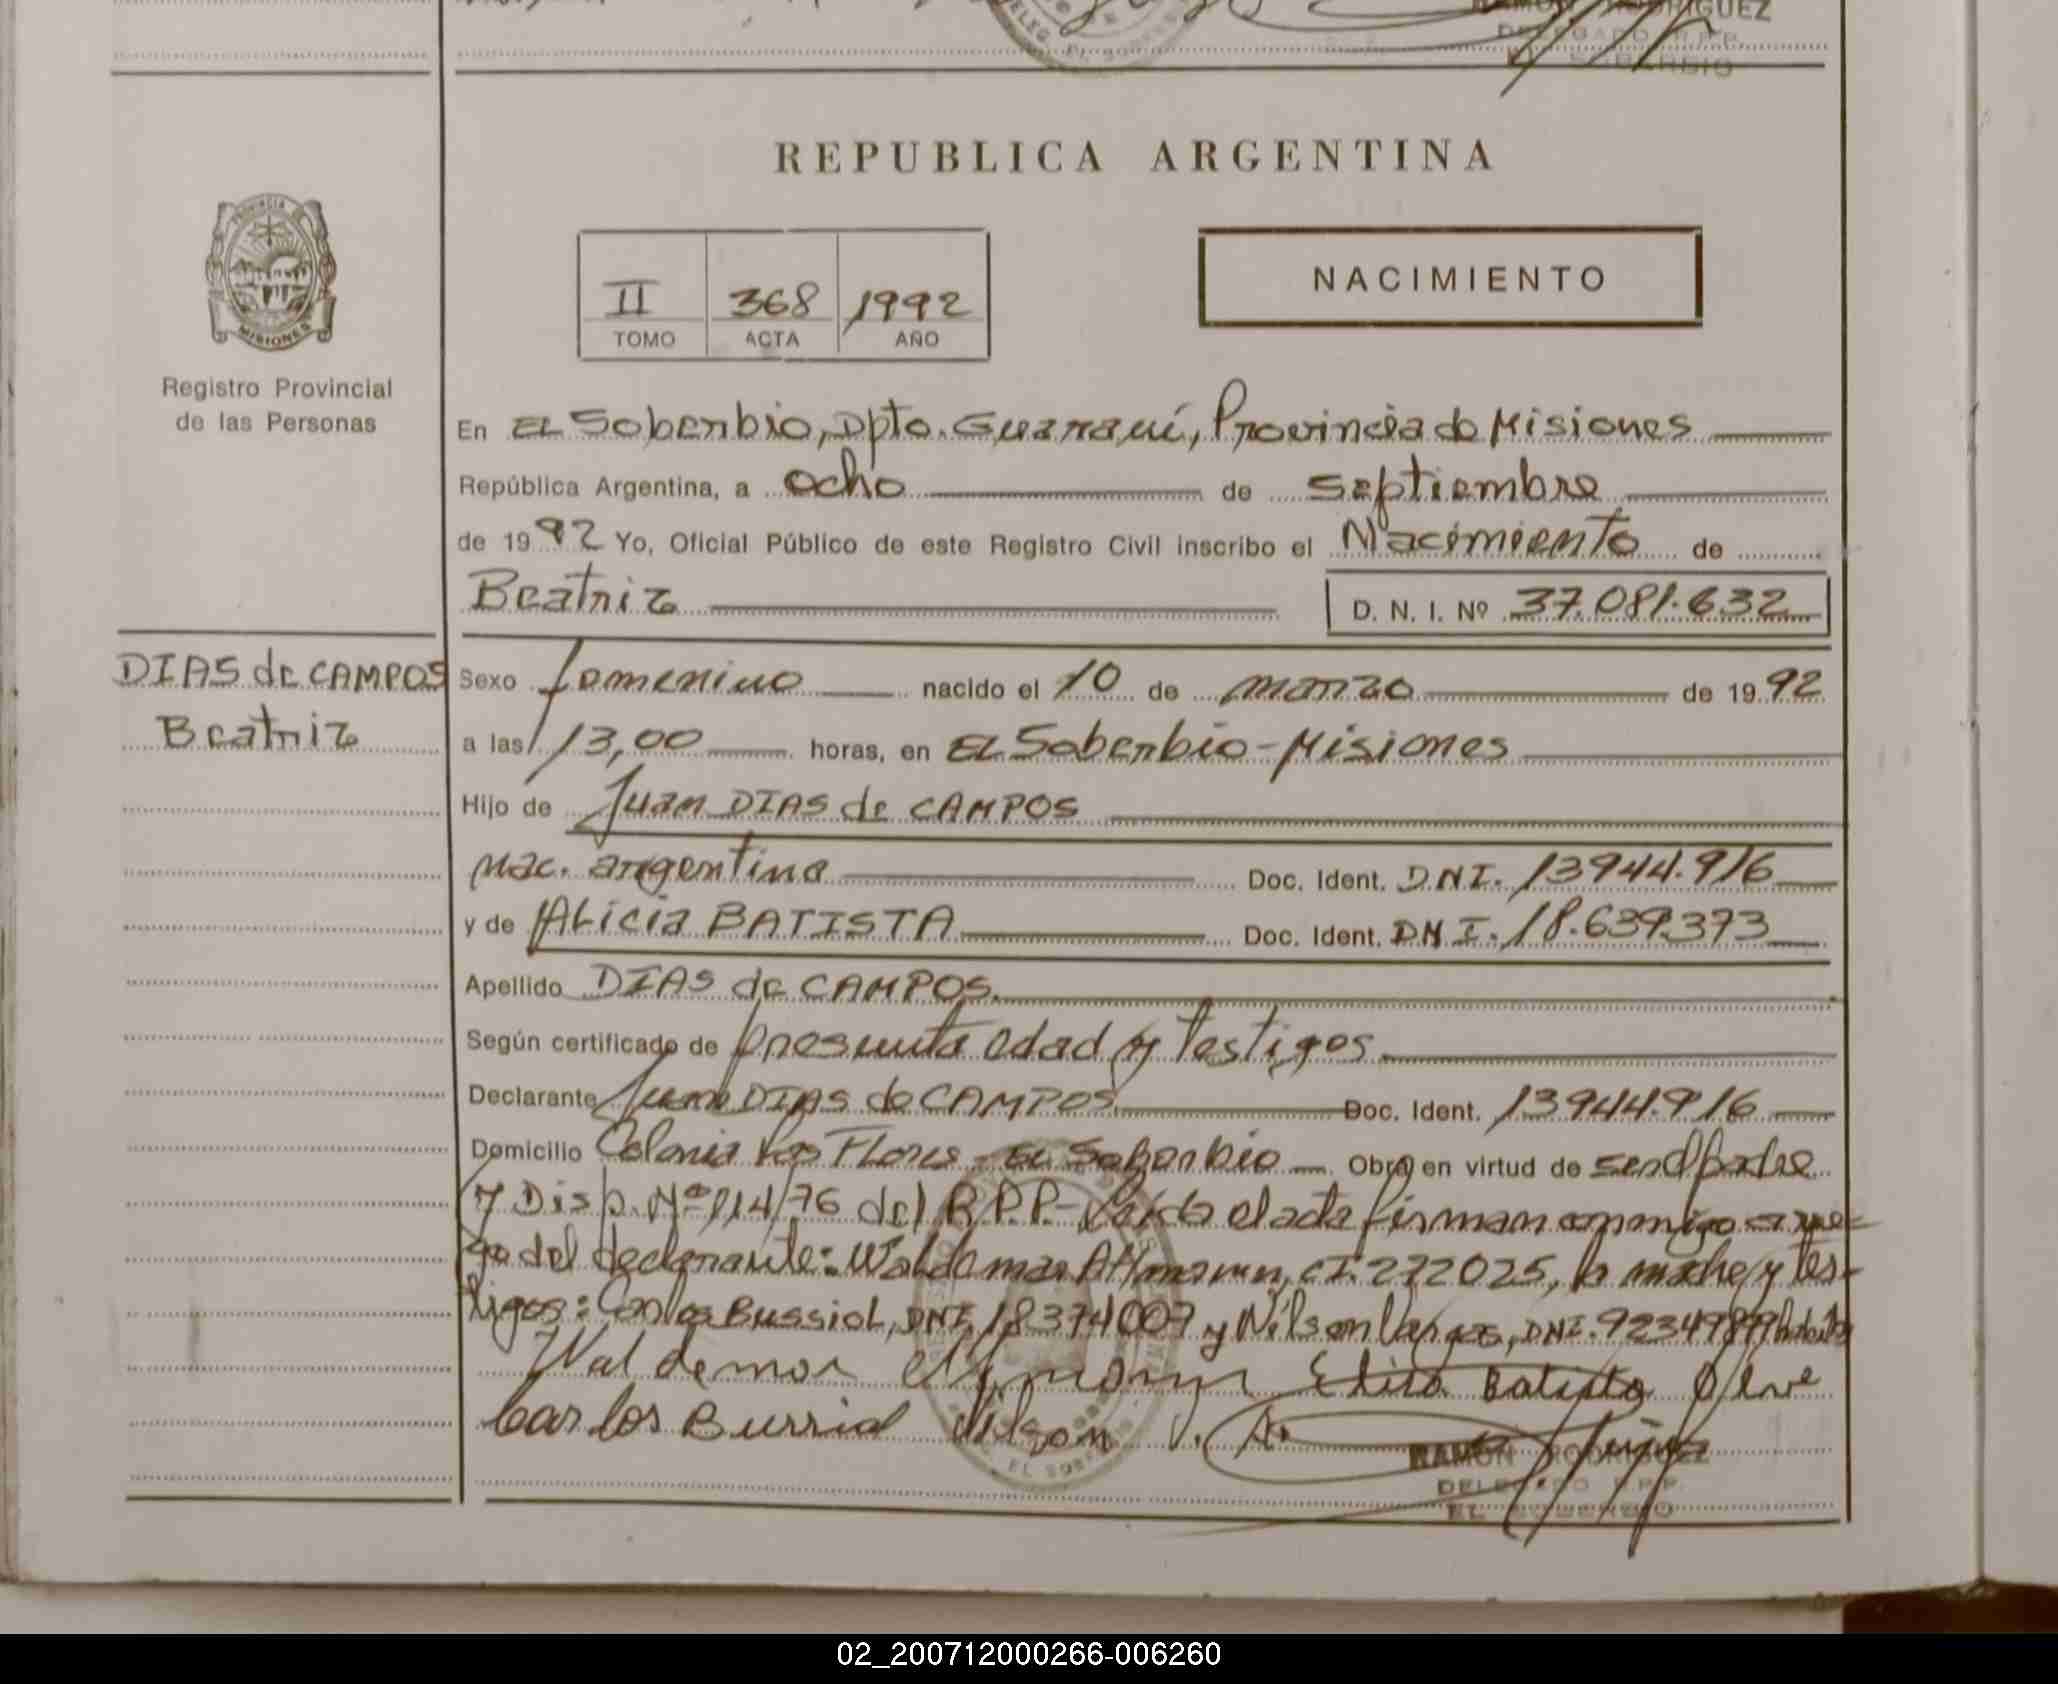 RAMON RODRIGUEZ
DELEGADO R.P.P.
EL SOBERBIO
REPUBLICA ARGENTINA
PROVINCIA DE
MISIONES
Registro Provincial
de las Personas
II 368 1992
TOMO ACTA AÑO
NACIMIENTO
En EL Soberbio, Dpto. Guaraní, Provincia de Misiones
República Argentina, a ocho de septiembre
de 1992 Yo, Oficial Público de este Registro Civil inscribo el Nacimiento de
Beatriz D. N. I. Nº 37.081.632
DIAS de CAMPOS
Beatriz
Sexo femenino nacido el 10 de marzo de 1992
a las 13,00 horas, en EL Soberbio-Misiones
Hijo de Juan DIAS de CAMPOS
Nac. argentina Doc. Ident. DNI. 13944.916
y de ALicia BATISTA Doc. Ident. DNI. 18.639.373
Apellido DIAS de CAMPOS
Según certificado de presunta edad y testigos
Declarante Juan DIAS de CAMPOS Doc. Ident. 13944.916
Domicilio Colonia Las Flores - EL Soberbio Obra en virtud de ser el padre
y Disp. Nº 114/76 del R.P.P.- Leída el acta firman conmigo a rue-
go del declarante: Waldemar CI. 272025, la madre y tes-
tigos: Carlos Bussiol, DNI. 18374007 y Nilson Vargas, DNI.
Waldemar Batista
Carlos Nilson V. A.
RAMON RODRIGUEZ
DELEGADO R.P.P.
EL SOBERBIO
02_200712000266-006260